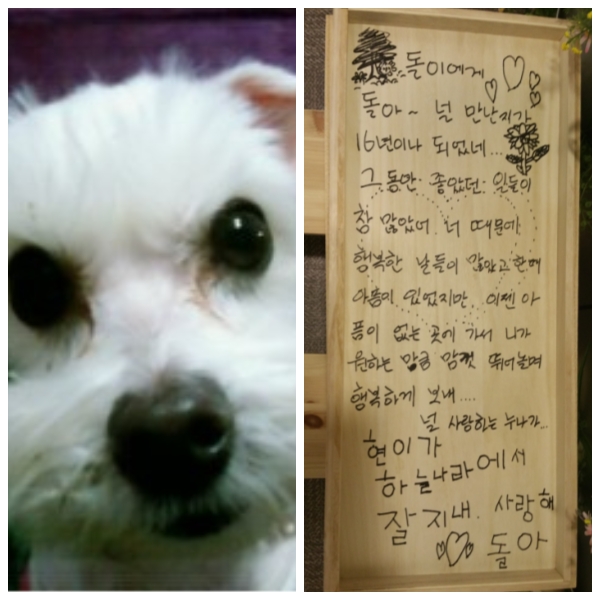 돌이에게
돌아~ 널 만난지가
16년이나 되었네...
그동안 좋았던 일들이
참 많았어 너 때문에
행복한 날들이 많았고 한때
아픔이 있었지만 이젠 아
픔이 없는 곳에 가서 니가
원하는 만큼 맘껏 뛰어놀며
행복하게 보내....
널 사랑하는 누나가...
현이가
하늘나라에서
잘 지내. 사랑해
돌아